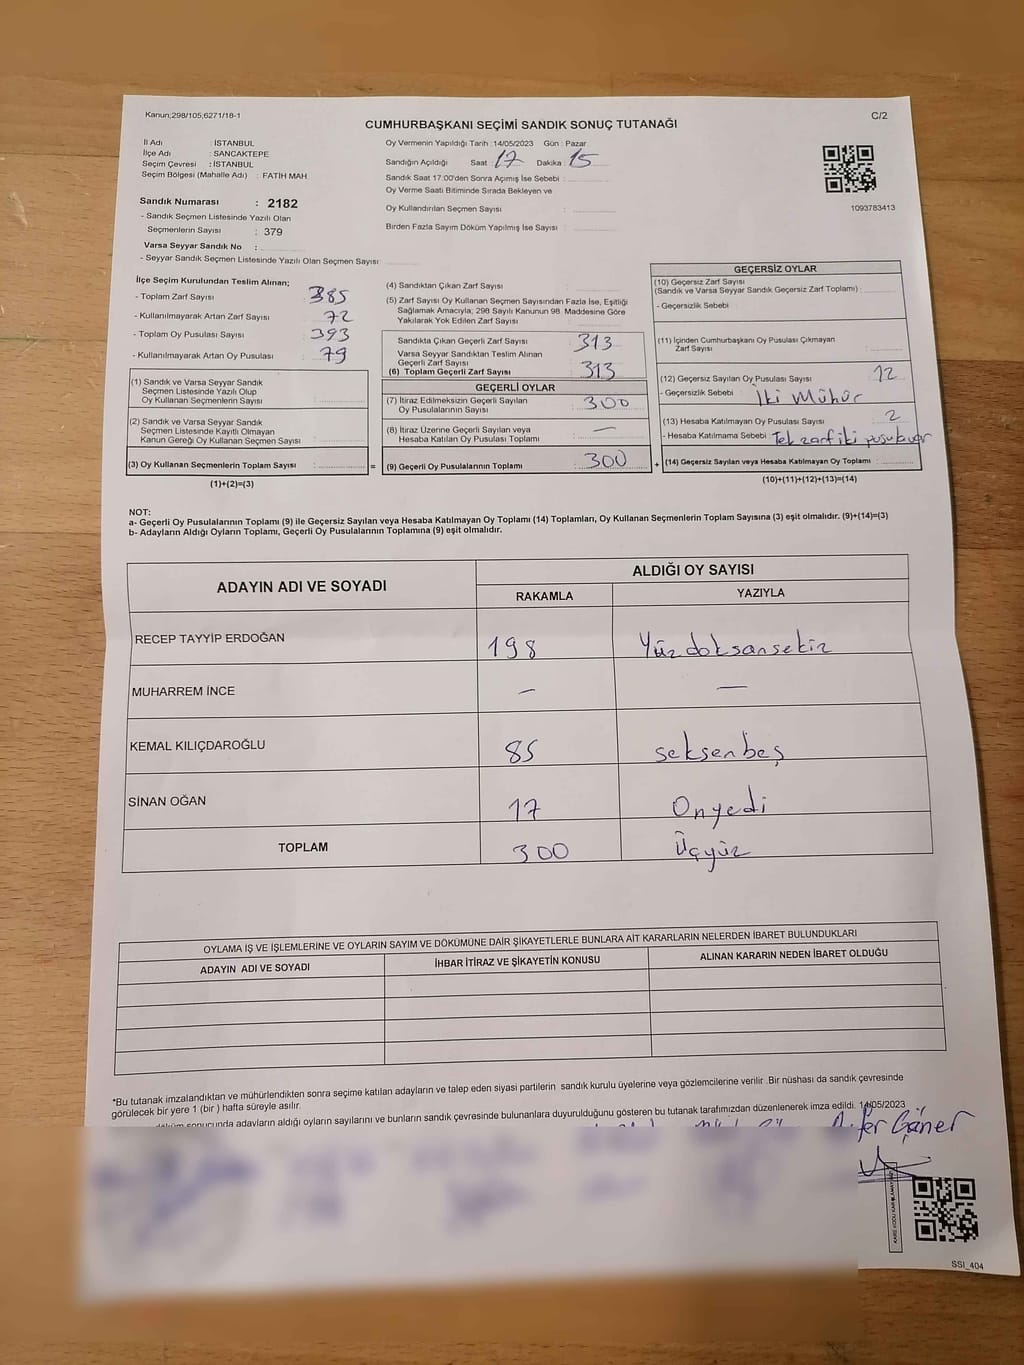 Kanun;298/105;6271/18-1
C/2
CUMHURBAŞKANI SEÇİMİ SANDIK SONUÇ TUTANAĞI
İl Adı : İSTANBUL
İlçe Adı : SANCAKTEPE
Seçim Çevresi : İSTANBUL
Seçim Bölgesi (Mahalle Adı) : FATİH MAH
Sandık Numarası : 2182
- Sandık Seçmen Listesinde Yazılı Olan
Seçmenlerin Sayısı : 379
Varsa Seyyar Sandık No :
- Seyyar Sandık Seçmen Listesinde Yazılı Olan Seçmen Sayısı:
Oy Vermenin Yapıldığı Tarih :14/05/2023 Gün : Pazar
Sandığın Açıldığı Saat 17 Dakika 15
Sandık Saat 17:00'den Sonra Açımış İse Sebebi :
Oy Verme Saati Bitiminde Sırada Bekleyen ve
Oy Kullandırılan Seçmen Sayısı :
Birden Fazla Sayım Döküm Yapılmış İse Sayısı :
1093783413
İlçe Seçim Kurulundan Teslim Alınan;
- Toplam Zarf Sayısı : 385
- Kullanılmayarak Artan Zarf Sayısı : 72
- Toplam Oy Pusulası Sayısı : 393
- Kullanılmayarak Artan Oy Pusulası : 79
(1) Sandık ve Varsa Seyyar Sandık
Seçmen Listesinde Yazılı Olup
Oy Kullanan Seçmenlerin Sayısı :
(2) Sandık ve Varsa Seyyar Sandık
Seçmen Listesinde Kayıtlı Olmayan
Kanun Gereği Oy Kullanan Seçmen Sayısı :
(3) Oy Kullanan Seçmenlerin Toplam Sayısı :
(1)+(2)=(3)
(4) Sandıktan Çıkan Zarf Sayısı :
(5) Zarf Sayısı Oy Kullanan Seçmen Sayısından Fazla İse, Eşitliği
Sağlamak Amacıyla; 298 Sayılı Kanunun 98. Maddesine Göre
Yakılarak Yok Edilen Zarf Sayısı :
Sandıkta Çıkan Geçerli Zarf Sayısı : 313
Varsa Seyyar Sandıktan Teslim Alınan
Geçerli Zarf Sayısı :
(6) Toplam Geçerli Zarf Sayısı : 313
GEÇERLİ OYLAR
(7) İtiraz Edilmeksizin Geçerli Sayılan
Oy Pusulalarının Sayısı : 300
(8) İtiraz Üzerine Geçerli Sayılan veya
Hesaba Katılan Oy Pusulası Toplamı : —
= (9) Geçerli Oy Pusulalarının Toplamı : 300
GEÇERSİZ OYLAR
(10) Geçersiz Zarf Sayısı
(Sandık ve Varsa Seyyar Sandık Geçersiz Zarf Toplamı) :
- Geçersizlik Sebebi :
(11) İçinden Cumhurbaşkanı Oy Pusulası Çıkmayan
Zarf Sayısı :
(12) Geçersiz Sayılan Oy Pusulası Sayısı : 12
- Geçersizlik Sebebi : İki Mühür
(13) Hesaba Katılmayan Oy Pusulası Sayısı : 2
- Hesaba Katılmama Sebebi : Tek zarf iki pusula var
+ (14) Geçersiz Sayılan veya Hesaba Katılmayan Oy Toplamı :
(10)+(11)+(12)+(13)=(14)
NOT:
a- Geçerli Oy Pusulalarının Toplamı (9) ile Geçersiz Sayılan veya Hesaba Katılmayan Oy Toplamı (14) Toplamları, Oy Kullanan Seçmenlerin Toplam Sayısına (3) eşit olmalıdır. (9)+(14)=(3)
b- Adayların Aldığı Oyların Toplamı, Geçerli Oy Pusulalarının Toplamına (9) eşit olmalıdır.
ADAYIN ADI VE SOYADI
ALDIĞI OY SAYISI
RAKAMLA YAZIYLA
RECEP TAYYİP ERDOĞAN 198 Yüzdoksansekiz
MUHARREM İNCE — —
KEMAL KILIÇDAROĞLU 85 seksenbeş
SİNAN OĞAN 17 Onyedi
TOPLAM 300 Üçyüz
OYLAMA İŞ VE İŞLEMLERİNE VE OYLARIN SAYIM VE DÖKÜMÜNE DAİR ŞİKAYETLERLE BUNLARA AİT KARARLARIN NELERDEN İBARET BULUNDUKLARI
ADAYIN ADI VE SOYADI İHBAR İTİRAZ VE ŞİKAYETİN KONUSU ALINAN KARARIN NEDEN İBARET OLDUĞU
*Bu tutanak imzalandıktan ve mühürlendikten sonra seçime katılan adayların ve talep eden siyasi partilerin sandık kurulu üyelerine veya gözlemcilerine verilir .Bir nüshası da sandık çevresinde
görülecek bir yere 1 (bir ) hafta süreyle asılır.
sonucunda adayların aldığı oyların sayılarını ve bunların sandık çevresinde bulunanlara duyurulduğunu gösteren bu tutanak tarafımızdan düzenlenerek imza edildi. 14/05/2023
SSİ_404